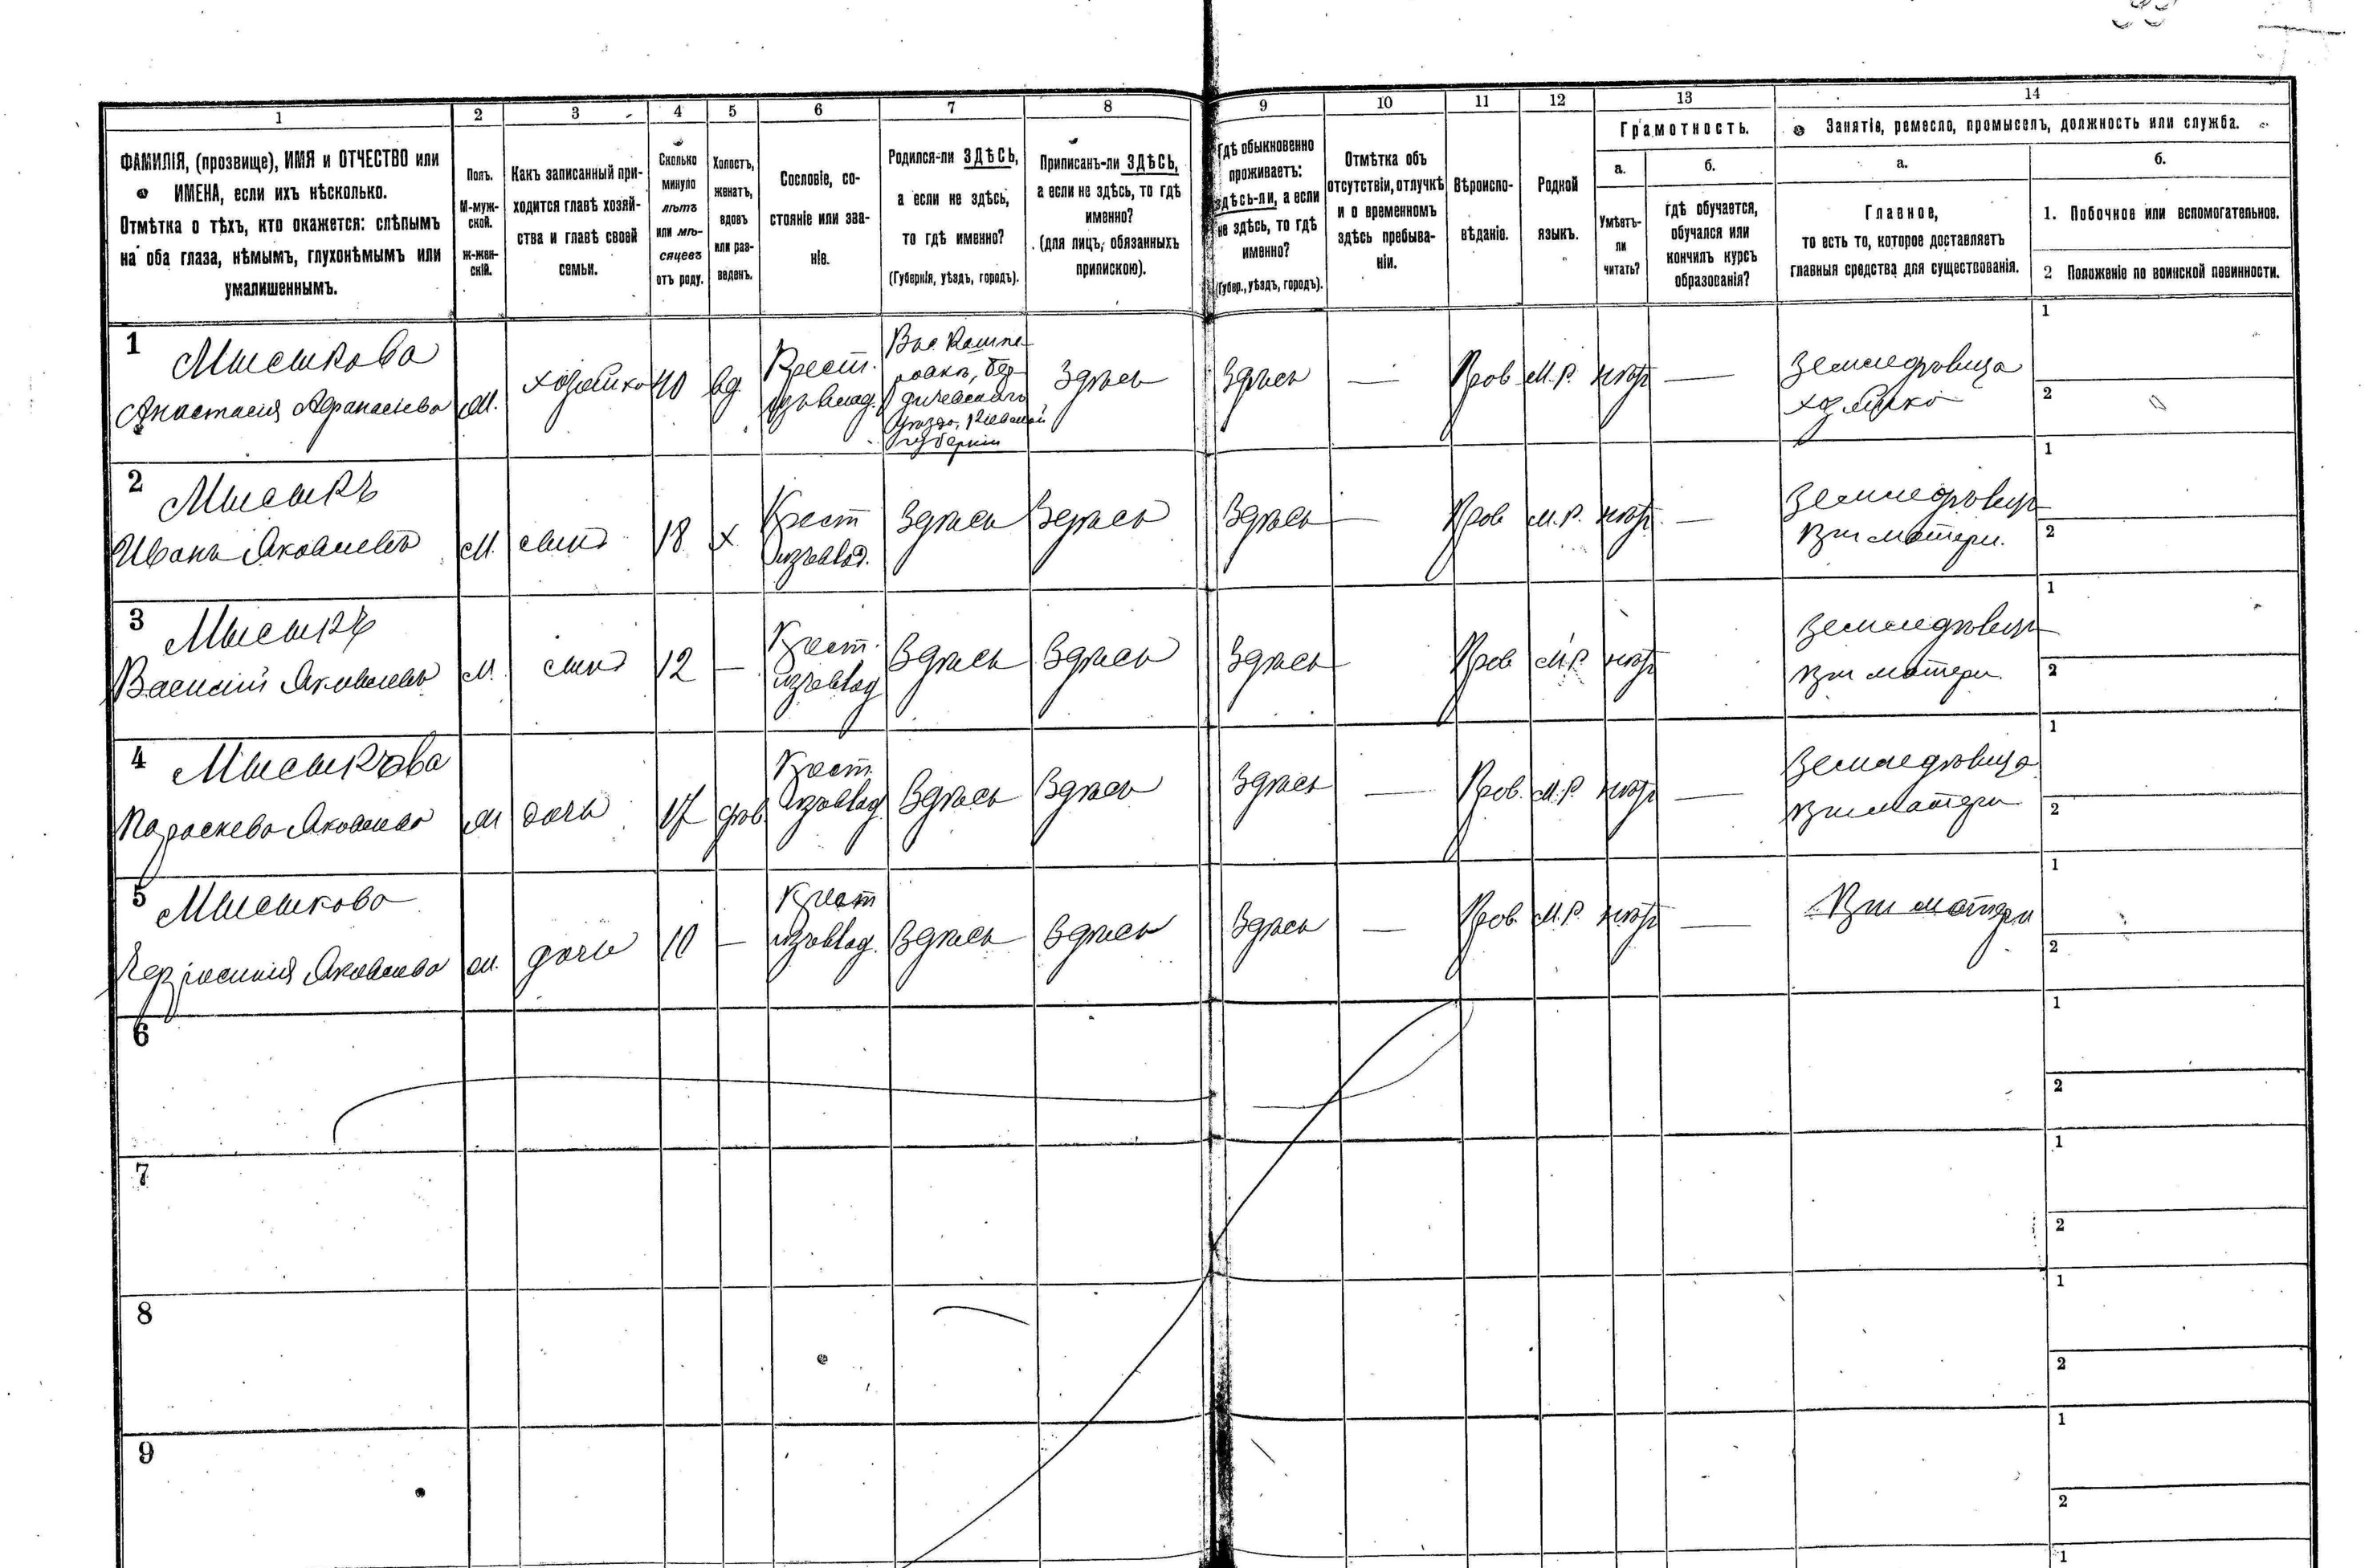 1 2 3 4 5 6 7 8 9 10 11 12 13 14
ФАМИЛІЯ, (прозвище), ИМЯ и ОТЧЕСТВО или
ИМЕНА, если ихъ нѣсколько.
Отмѣтка о тѣхъ, кто окажется: слѣпымъ
на оба глаза, нѣмымъ, глухонѣмымъ или
умалишеннымъ.
Полъ.
М-муж-
ской.
ж-жен-
скій.
Какъ записанный при-
ходится главѣ хозяй-
ства и главѣ своей
семьи.
Сколько
минуло
лѣтъ
или мѣ-
сяцевъ
отъ роду.
Холостъ,
женатъ,
вдовъ
или раз-
веденъ.
Сословіе, со-
стояніе или зва-
ніе.
Родился-ли ЗДѢСЬ,
а если не здѣсь,
то гдѣ именно?
(Губернія, уѣздъ, городъ).
Приписанъ-ли ЗДѢСЬ,
а если не здѣсь, то гдѣ
именно?
(для лицъ, обязанныхъ
припискою).
Гдѣ обыкновенно
проживаетъ:
здѣсь-ли, а если
не здѣсь, то гдѣ
именно?
(Губер., уѣздъ, городъ).
Отмѣтка объ
отсутствіи, отлучкѣ
и о временномъ
здѣсь пребыва-
ніи.
Вѣроиспо-
вѣданіе.
Родной
языкъ.
Грамотность.
а.
Умѣетъ-
ли
читать?
б.
гдѣ обучается,
обучался или
кончилъ курсъ
образованія?
Занятіе, ремесло, промыселъ, должность или служба.
а.
Главное,
то есть то, которое доставляетъ
главныя средства для существованія.
б.
1. Побочное или вспомогательное.
2 Положеніе по воинской повинности.
1 Мысыкова
Анастасия Афанасіева
М. хозяйка 40 вд Крест.
изъ влад.
бер-
дичевскаго
уѣзда, Кіевской
губерніи
Здѣсь Здѣсь — Прав М.Р. нѣт — Земледѣлица
хозяйка
1
2
2 Мысыкъ
Иванъ Яковлевъ
М. сынъ 18 х Крест
изъ влад.
Здѣсь Здѣсь Здѣсь — Прав М.Р. нѣт. — Земледѣлец
при матери.
1
2
3 Мысыкъ
Василій Яковлевъ
М. сынъ 12 — Крест.
изъ влад
Здѣсь Здѣсь Здѣсь Прав М.Р. нѣт Земледѣлец
при матери.
1
2
4 Мысыкова
Параскева Яковлева
М дочь 17 дѣв. Крест.
изъ влад
Здѣсь Здѣсь Здѣсь — Прав. М.Р. нѣт — Земледѣлица
при матери
1
2
5 Мысыкова
Яковлева
М. дочь 10 — Крест
изъ влад.
Здѣсь Здѣсь Здѣсь — Прав М.Р. нѣт — При матери
1
2
6
1
2
7
1
2
8
1
2
9
1
2
1